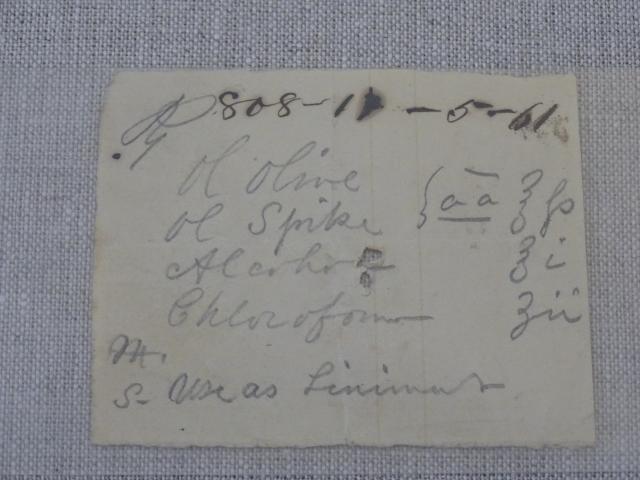 ℞ 808-11-5-61
Ol Olive
Ol Spike } āā ℥ ss
Alcohol ℥ i
Chloroform ʒ ii
M.
S- Use as Liniment